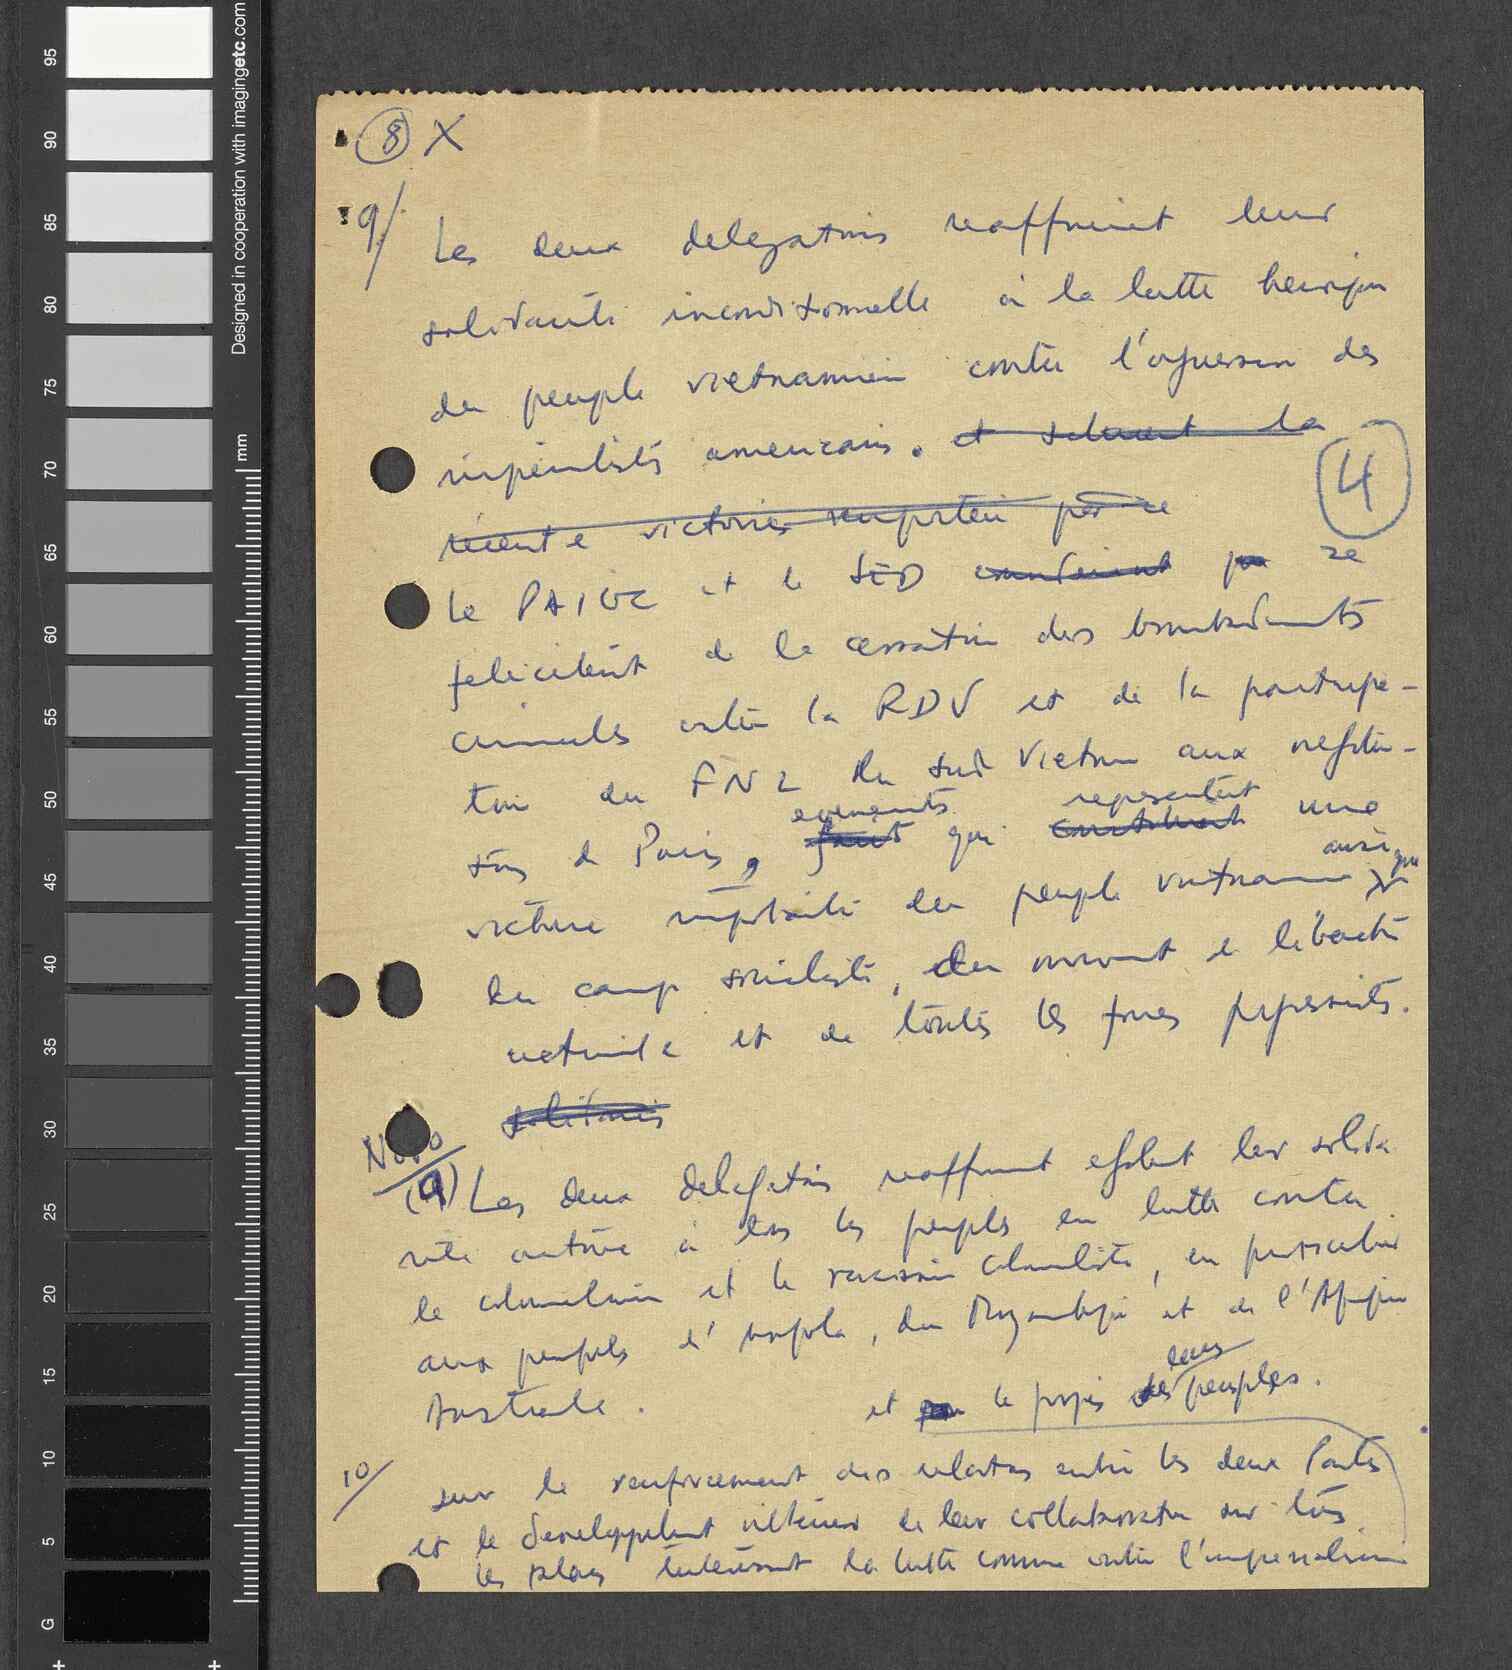 95
90
85
80
75
70
65
60
55
50
45
40
35
30
25
20
15
10
5
G
Designed in cooperation with imagingetc.com
mm
8 X
9/ Les deux delegations reaffirment leur
solidarité inconditionnelle à la lutte heroique
du peuple vietnamien contre l'agression des
imperialistes americains. et saluent la
récente victoires remportées par ce
4
Le PAIGC et le SED se
felicitent de la cessation des bombardements
criminels contre la RDV et de la participa-
tion du FNL du Sud Vietnam aux negotia-
evenements representent
tions de Paris, qui constituent une
ainsi que
victoire importante du peuple vietnamien
du camp socialiste, du mouvement de liberation
nationale et de toutes les forces progressistes.
solidaires
Novo
(9) Les deux delegations reaffirment egalement leur solida
rité active à tous les peuples en lutte contre
le colonialisme et le racisme colonialiste, en particulier
aux peuples d'Angola, du Mozambique et de l'Afrique
Australe.
leurs
et le progrès des peuples.
10/ sur le renforcement des relations entre les deux Partis
et le developpement ultérieur de leur collaboration sur tous
les plans interessant la lutte commune contre l'imperialisme